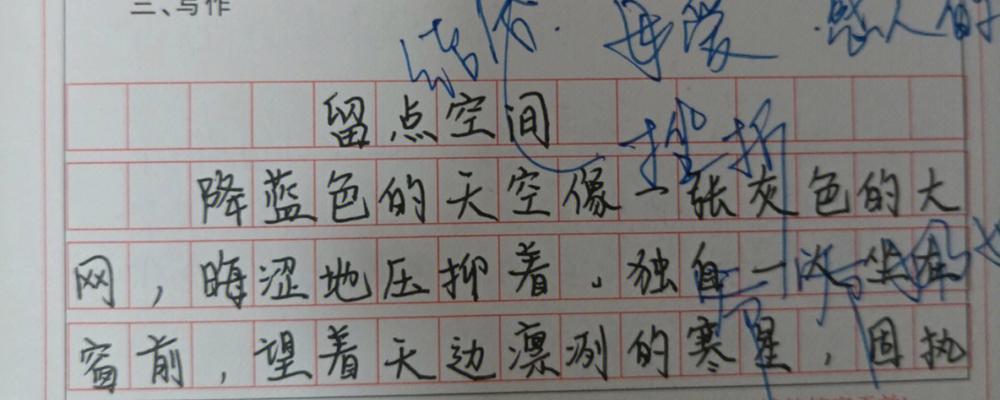 三、写作
结 再 爱 感人的
留点空间
挫折
降蓝色的天空像一张灰色的大
网，晦涩地压抑着。独自一人坐在
窗前，望着天边凛冽的寒星，固执